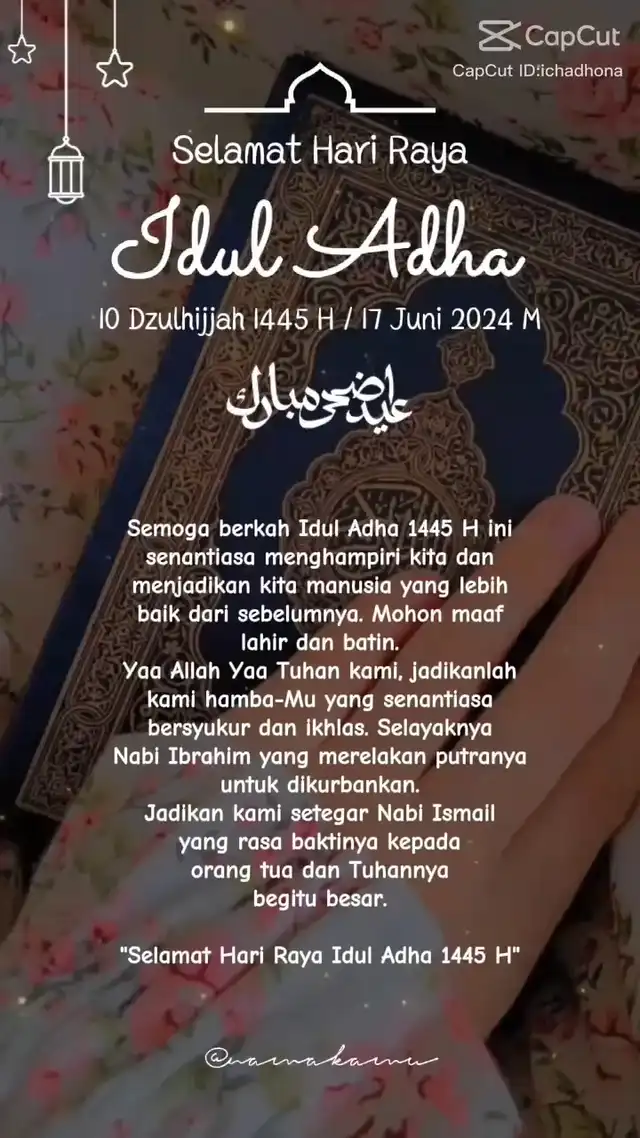 CapCut
CapCut ID:ichadhona
Selamat Hari Raya
Idul Adha
10 Dzulhijjah 1445 H / 17 Juni 2024 M
عيد اضحى مبارك
Semoga berkah Idul Adha 1445 H ini
senantiasa menghampiri kita dan
menjadikan kita manusia yang lebih
baik dari sebelumnya. Mohon maaf
lahir dan batin.
Yaa Allah Yaa Tuhan kami, jadikanlah
kami hamba-Mu yang senantiasa
bersyukur dan ikhlas. Selayaknya
Nabi Ibrahim yang merelakan putranya
untuk dikurbankan.
Jadikan kami setegar Nabi Ismail
yang rasa baktinya kepada
orang tua dan Tuhannya
begitu besar.
"Selamat Hari Raya Idul Adha 1445 H"
@namakamu